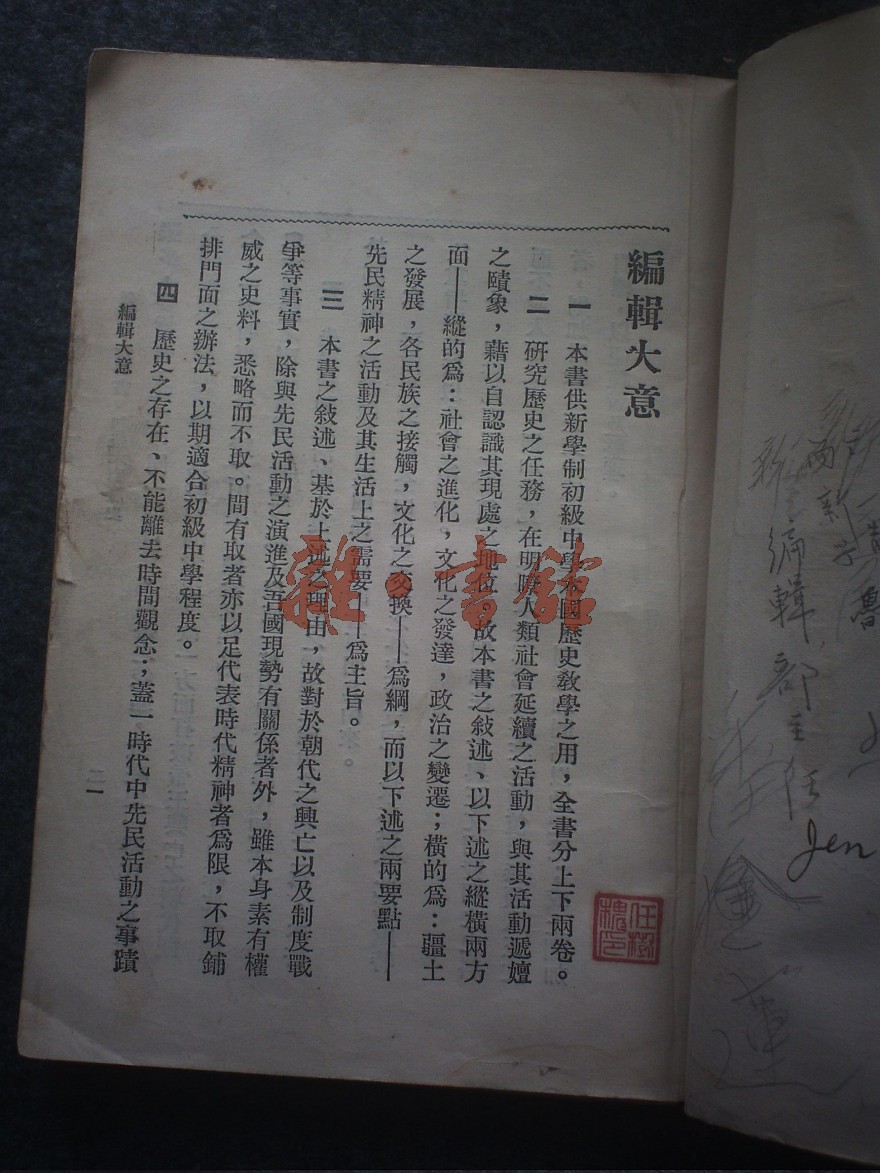 編輯大意
一 本書供新學制初級中學本國歷史教學之用，全書分上下兩卷。
二 研究歷史之任務，在明瞭人類社會延續之活動，與其活動遞嬗
之賾象，藉以自認識其現處之地位，故本書之敍述、以下述之縱橫兩方
面——縱的爲：社會之進化，文化之發達，政治之變遷；橫的爲：疆土
之發展，各民族之接觸，文化之交換——爲綱，而以下述之兩要點——
先民精神之活動及其生活上之需要——爲主旨。
三 本書之敍述、基於上述之理由，故對於朝代之興亡以及制度戰
爭等事實，除與先民活動之演進及吾國現勢有關係者外，雖本身素有權
威之史料，悉略而不取。間有取者亦以足代表時代精神者爲限，不取鋪
排門面之辦法，以期適合初級中學程度。
四 歷史之存在、不能離去時間觀念；蓋一時代中先民活動之事蹟
編輯大意
一
雜·書館
任樹
編輯部主任
Jen